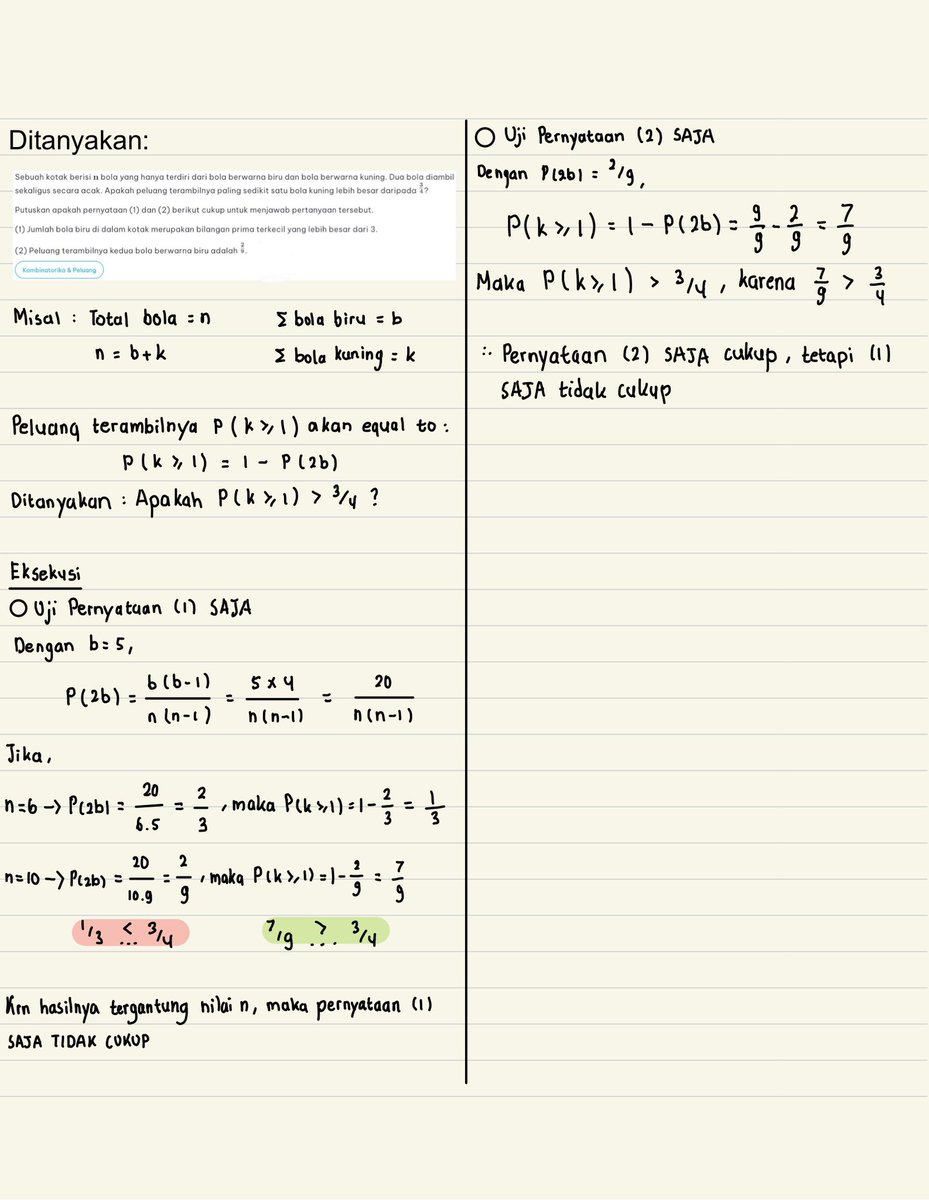 Ditanyakan:
Sebuah kotak berisi n bola yang hanya terdiri dari bola berwarna biru dan bola berwarna kuning. Dua bola diambil
sekaligus secara acak. Apakah peluang terambilnya paling sedikit satu bola kuning lebih besar daripada 3/4?
Putuskan apakah pernyataan (1) dan (2) berikut cukup untuk menjawab pertanyaan tersebut.
(1) Jumlah bola biru di dalam kotak merupakan bilangan prima terkecil yang lebih besar dari 3.
(2) Peluang terambilnya kedua bola berwarna biru adalah 2/9.
Kombinatorika & Peluang
Misal : Total bola = n Σ bola biru = b
n = b+k Σ bola kuning = k
Peluang terambilnya P(k≥1) akan equal to :
P(k≥1) = 1 - P(2b)
Ditanyakan : Apakah P(k≥1) > 3/4 ?
Eksekusi
○ Uji Pernyataan (1) SAJA
Dengan b=5,
P(2b) = b(b-1)/n(n-1) = 5x4/n(n-1) = 20/n(n-1)
Jika,
n=6 → P(2b) = 20/6.5 = 2/3, maka P(k≥1) = 1 - 2/3 = 1/3
n=10 → P(2b) = 20/10.9 = 2/9, maka P(k≥1) = 1 - 2/9 = 7/9
1/3 <... 3/4 7/9 >... 3/4
Krn hasilnya tergantung nilai n, maka pernyataan (1)
SAJA TIDAK CUKUP
○ Uji Pernyataan (2) SAJA
Dengan P(2b) = 2/9,
P(k≥1) = 1 - P(2b) = 9/9 - 2/9 = 7/9
Maka P(k≥1) > 3/4, karena 7/9 > 3/4
∴ Pernyataan (2) SAJA cukup, tetapi (1)
SAJA tidak cukup